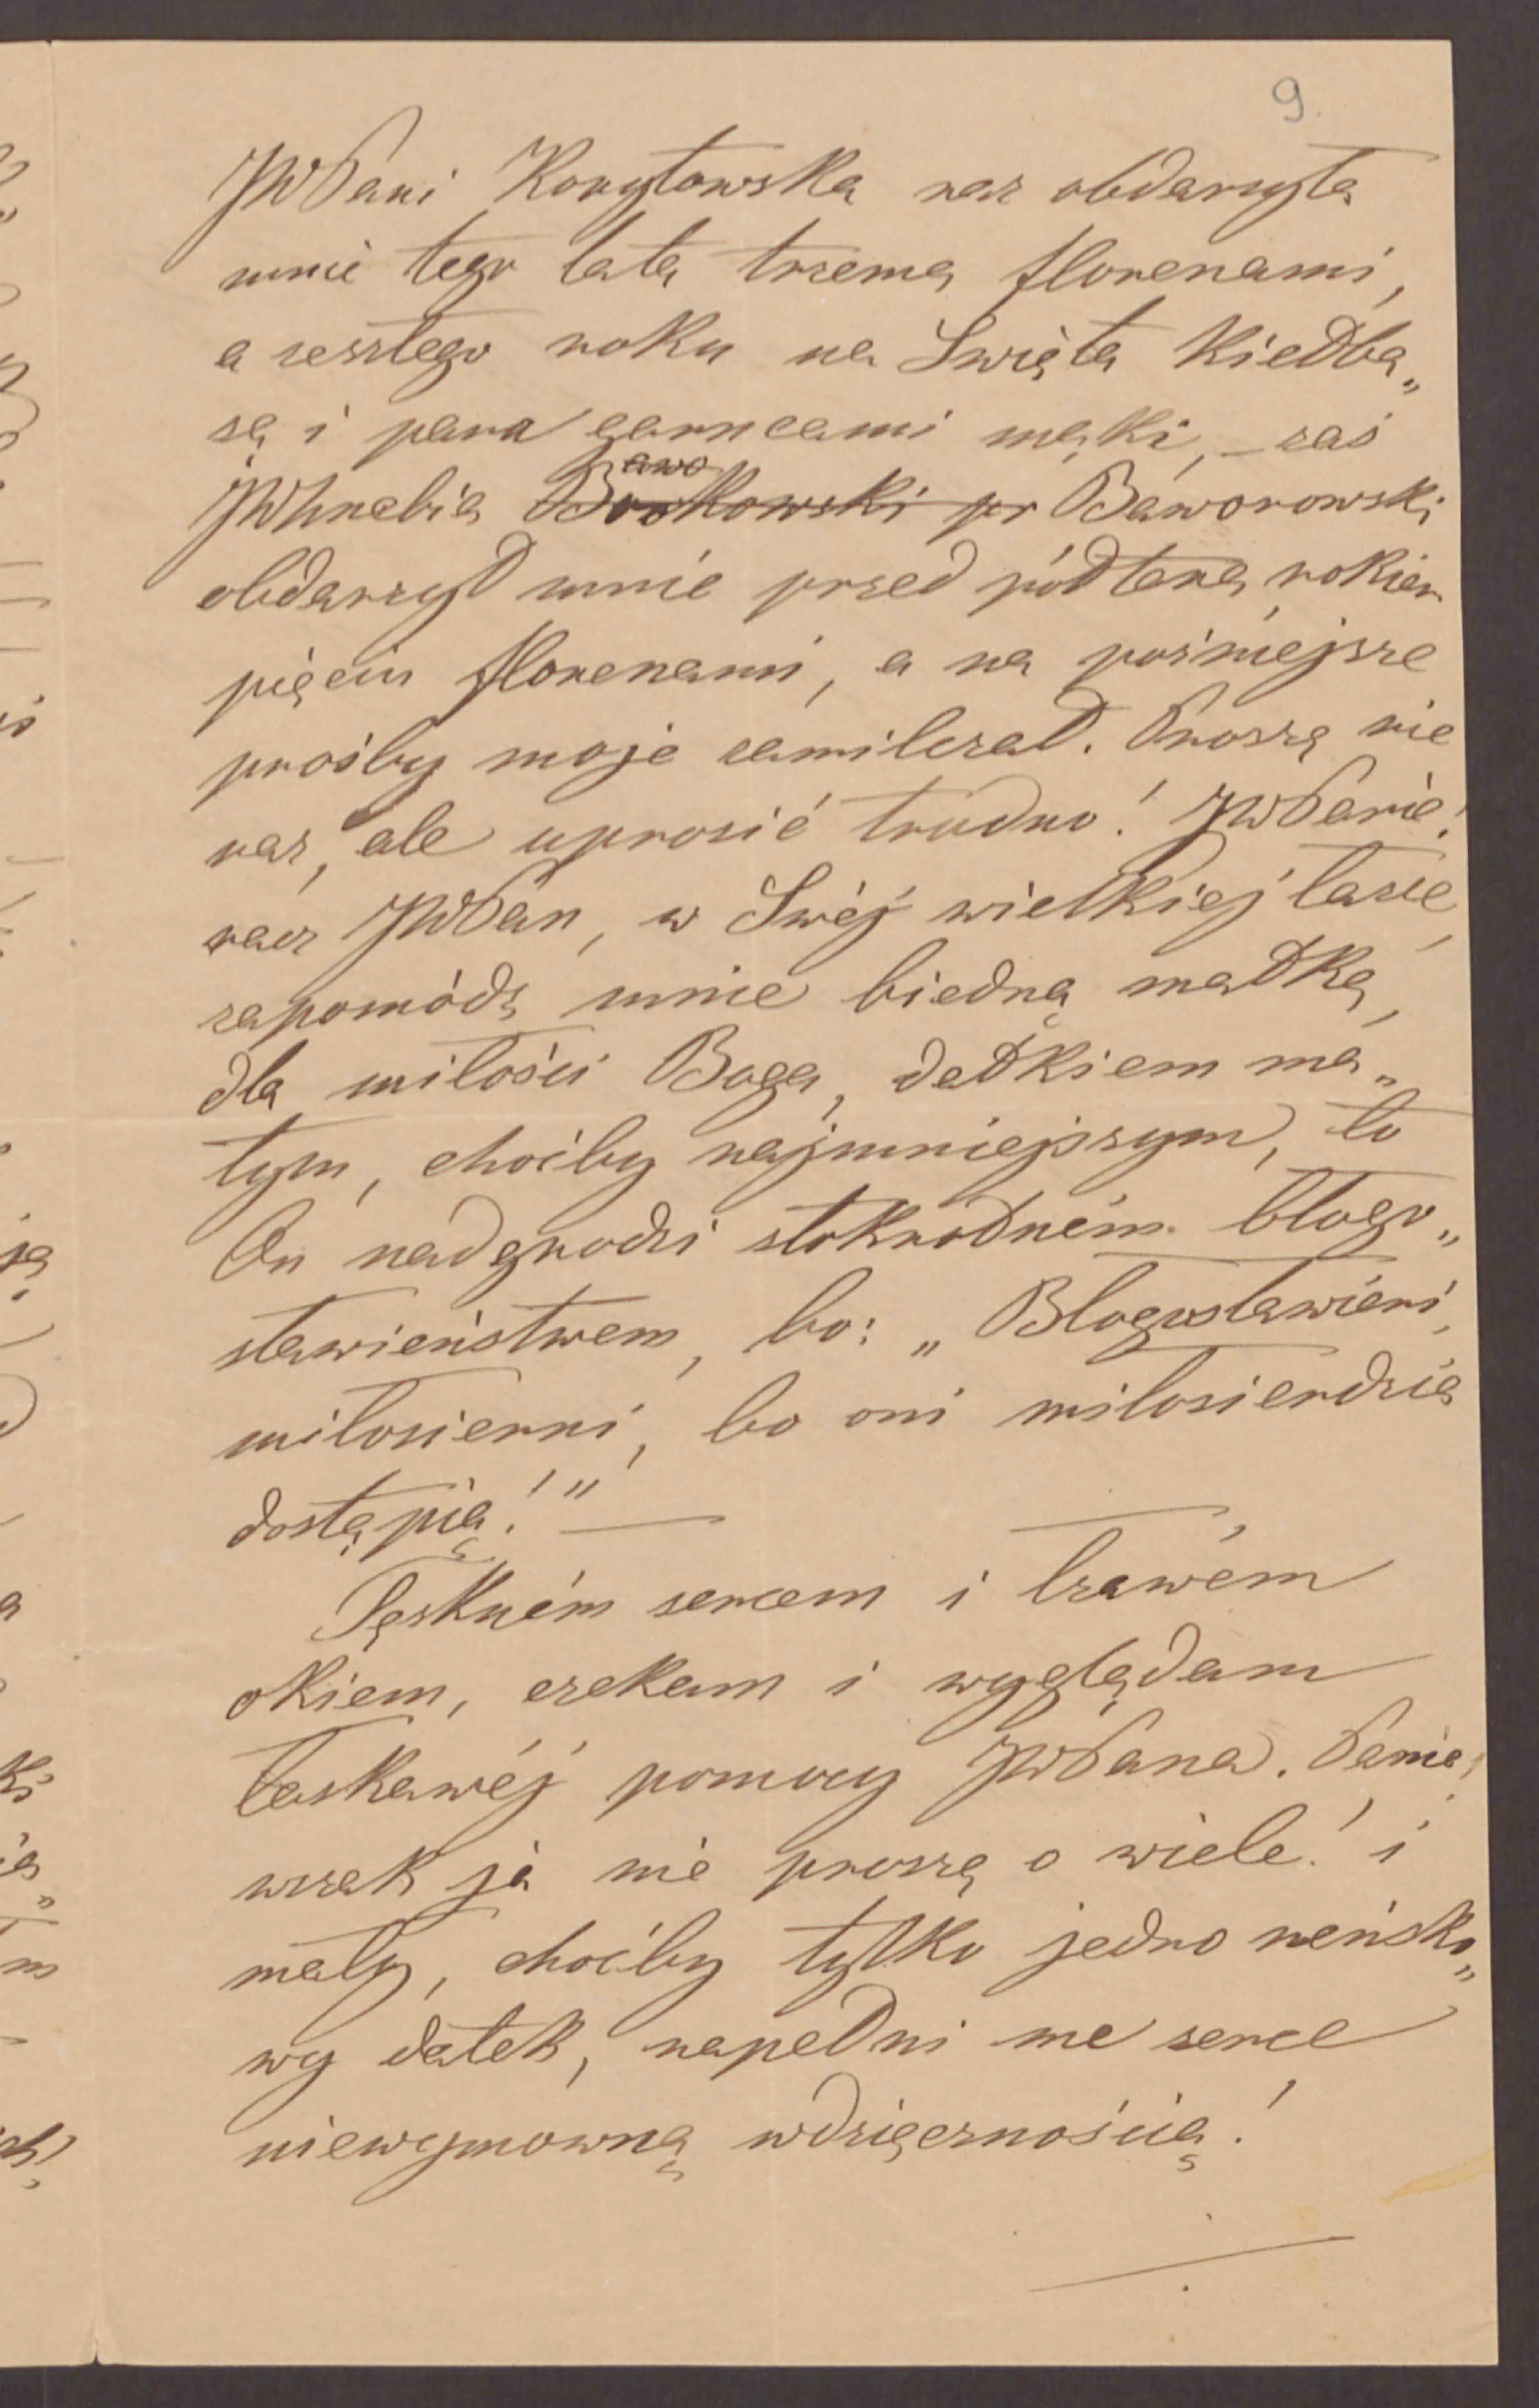 9.
JWPani Korytowska raz obdarzyła
mnie tego lata trzema florenami,
a zeszłego roku na Święta kiełba„
są i para garncami mąki, – zaś
JWhrabia Borkowski pr Baworowski
awo
obdarzył mnie przed półtora rokiem
pięciu florenami, a na poźniejsze
prośby moje zamilczał. Proszę nie
raz, ale uprosić trudno! JWPanie!
racz JWPan, w Swéj wielkiej łasce,
zapomódz mnie biedną matkę,
dla miłości Boga, datkiem ma„
łym, choćby najmniejszym, to
On nadgrodzi stokrotném błogo„
sławieństwem, bo: „Błogosławieni,
miłosierni, bo oni miłosierdzia
dostąpią!" —
Tęskném sercem i łzawém
okiem, czekam i wyglądam
łaskawéj pomocy JWPana. Panie!
wszak ja nie proszę o wiele! i
mały, choćby tylko jedno reńsko„
wy datek, napełni me serce
niewymowną wdzięcznością!